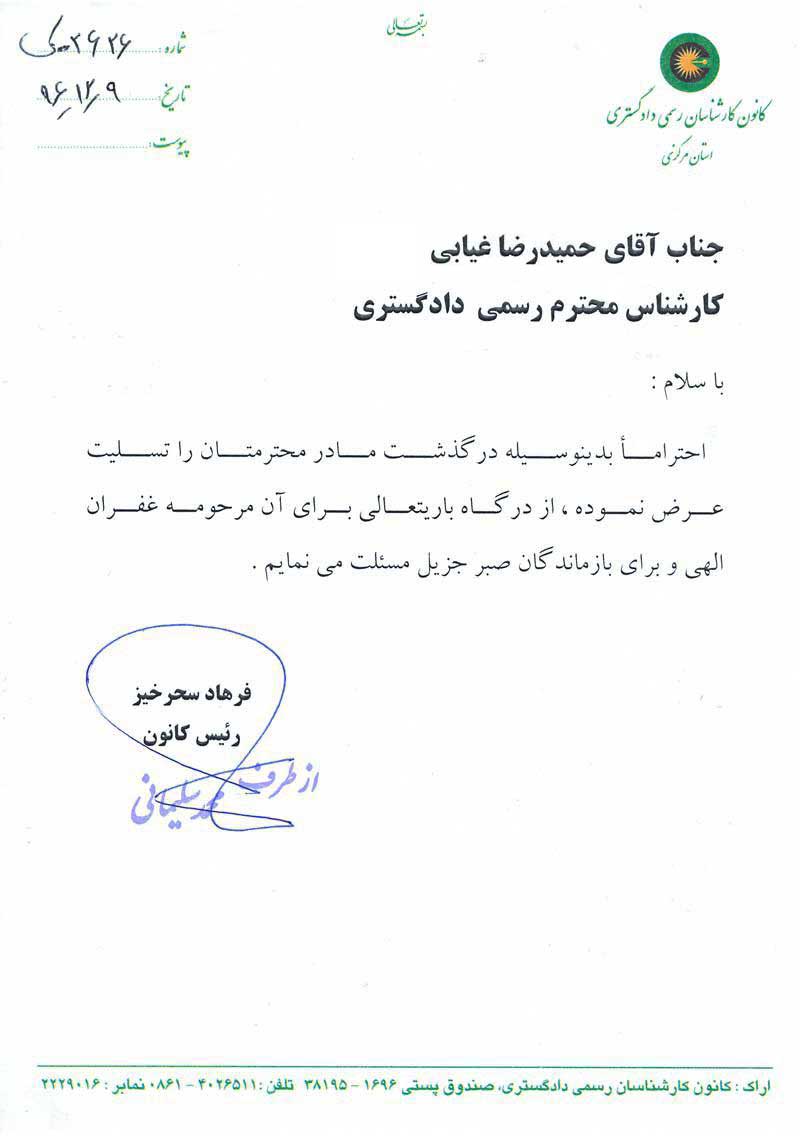 بسمه‌تعالی
کانون کارشناسان رسمی دادگستری
استان مرکزی
شماره :
تاریخ : ۹۶/۱۲/۹
پیوست :
جناب آقای حمیدرضا غیابی
کارشناس محترم رسمی دادگستری
با سلام :
احترامـــأ بدینوســـیله درگذشـــت مـــادر محترمتـــان را تســـلیت
عـــرض نمـــوده ، از درگـــاه باریتعـالی بـــرای آن مرحومـــه غفـــران
الهی و برای بازماندگان صبر جزیل مسئلت می نمایم .
فرهاد سحرخیز
رئیس کانون
از طرف
محمد سلیمانی
اراک : کانون کارشناسان رسمی دادگستری، صندوق پستی ۱۶۹۶ - ۳۸۱۹۵ تلفن : ۴۰۲۶۵۱۱ - ۰۸۶۱ نمابر : ۲۲۲۹۰۱۶